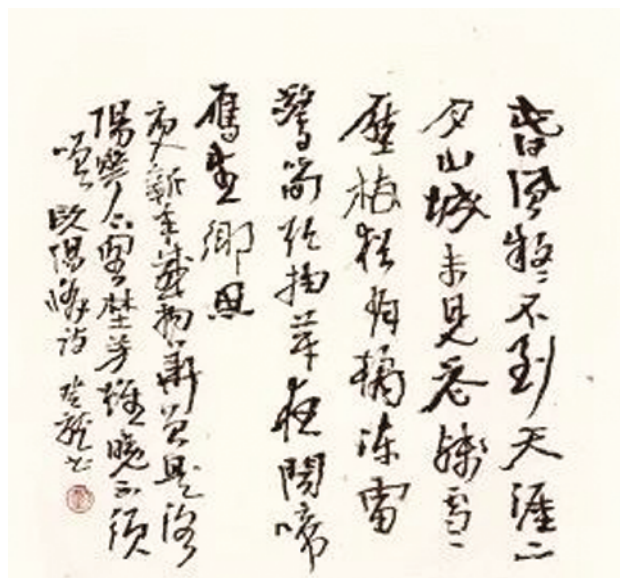 春風疑不到天涯二
月山城未見花殘雪
壓枝猶有橘凍雷
驚筍欲抽芽夜聞啼
雁生鄉思
新年感物華曾是洛
陽客野芳雖晚不須
嗟 歐陽修詩 龍書